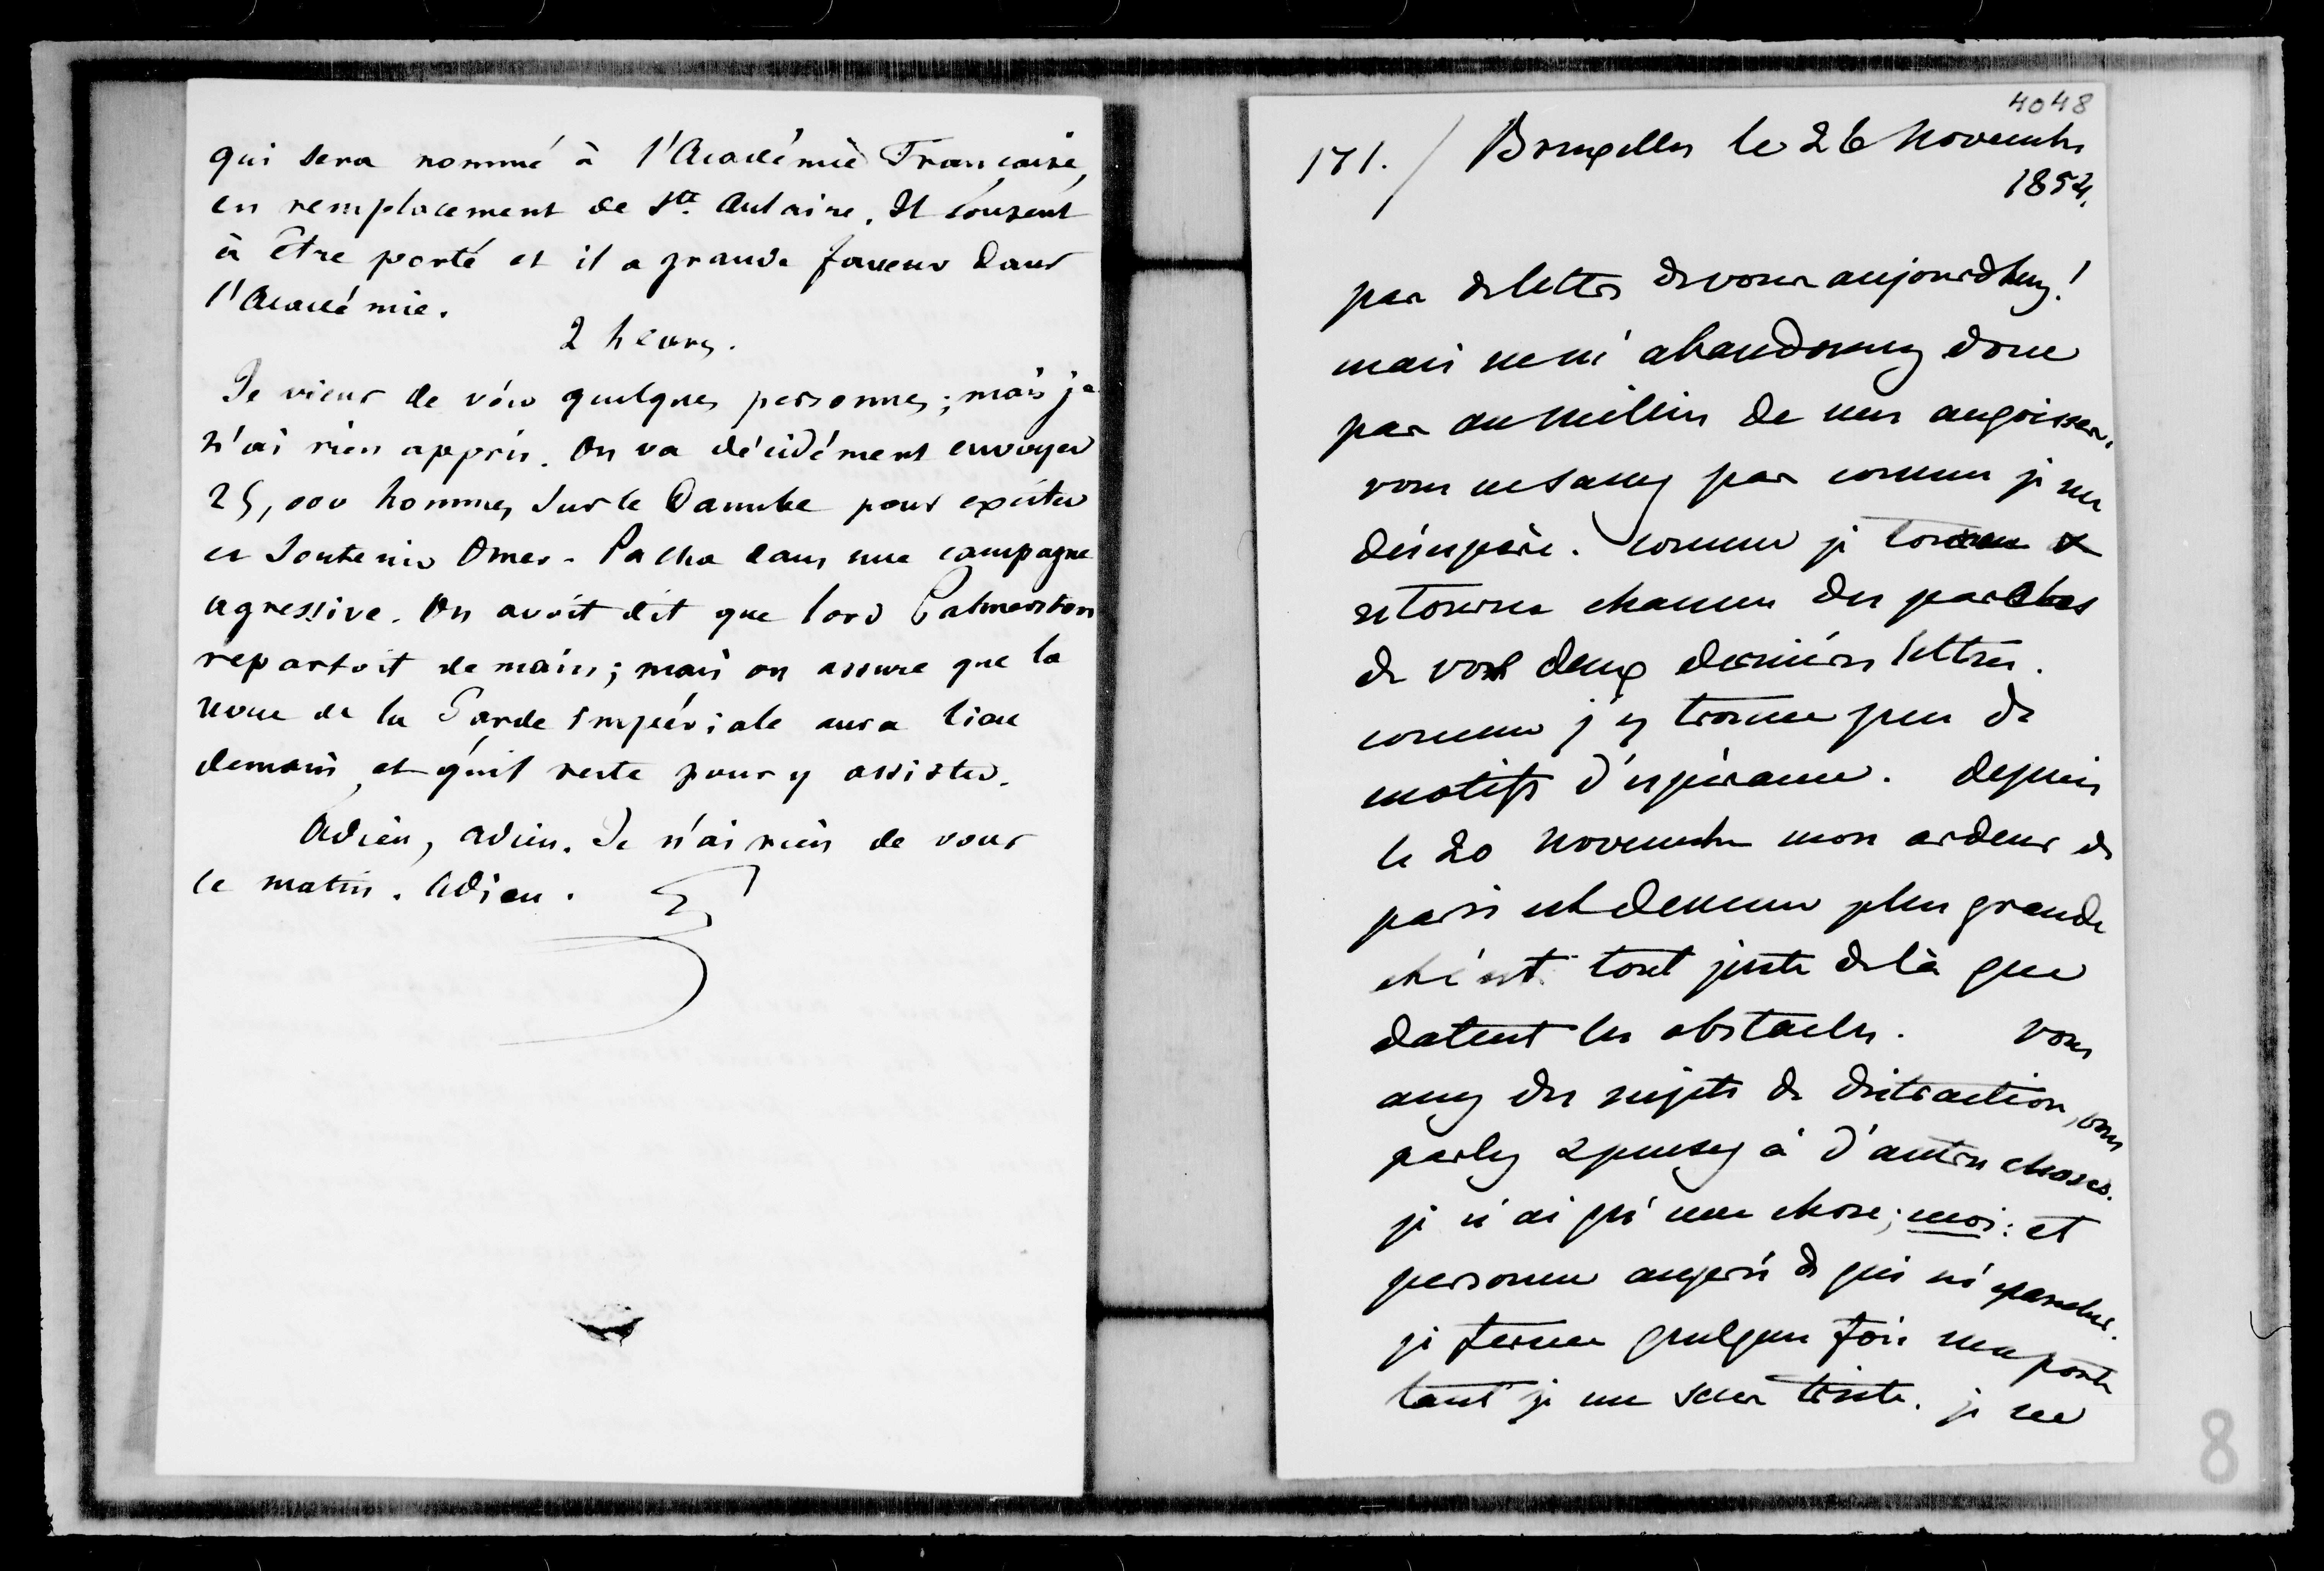 qui sera nommé à l'Académie Française,
en remplacement de Ste Aulaire. Il consent
à être porté et il a grande faveur dans
l'Académie.
2 heures.
Je viens de voir quelques personnes; mais je
n'ai rien appris. On va décidément envoyer
25,000 hommes sur le Danube pour exciter
et soutenir Omer-Pacha dans une campagne
agressive. On avoit dit que lord Palmerston
repartoit demain; mais on assure que la
revue de la Garde impériale aura lieu
demain, et qu'il reste pour y assister.
Adieu, adieu. Je n'ai rien de vous
ce matin. Adieu.
4048
171. / Bruxelles le 26 Novembre
1854.
pas de lettre de vous aujourdhuy!
mais ne m'abandonnez donc
pas au milieu de mes angoisses.
vous ne savez pas comme je me
désespère. comme je tourne &
retourne chacune des paroles
de vos deux dernières lettres.
comme j'y trouve peu de
motifs d'espérance. depuis
le 20 novembre mon ardeur de
paris est devenue plus grande
et c'est tout juste de là que
datent les obstacles. vous
avez des sujets de distraction, vous
parlez & pensez à d'autres choses.
je n'ai qu'une chose; moi: et
personne auprès de qui m'épancher.
je ferme quelques fois ma porte
tant je me sens triste. je ne
8